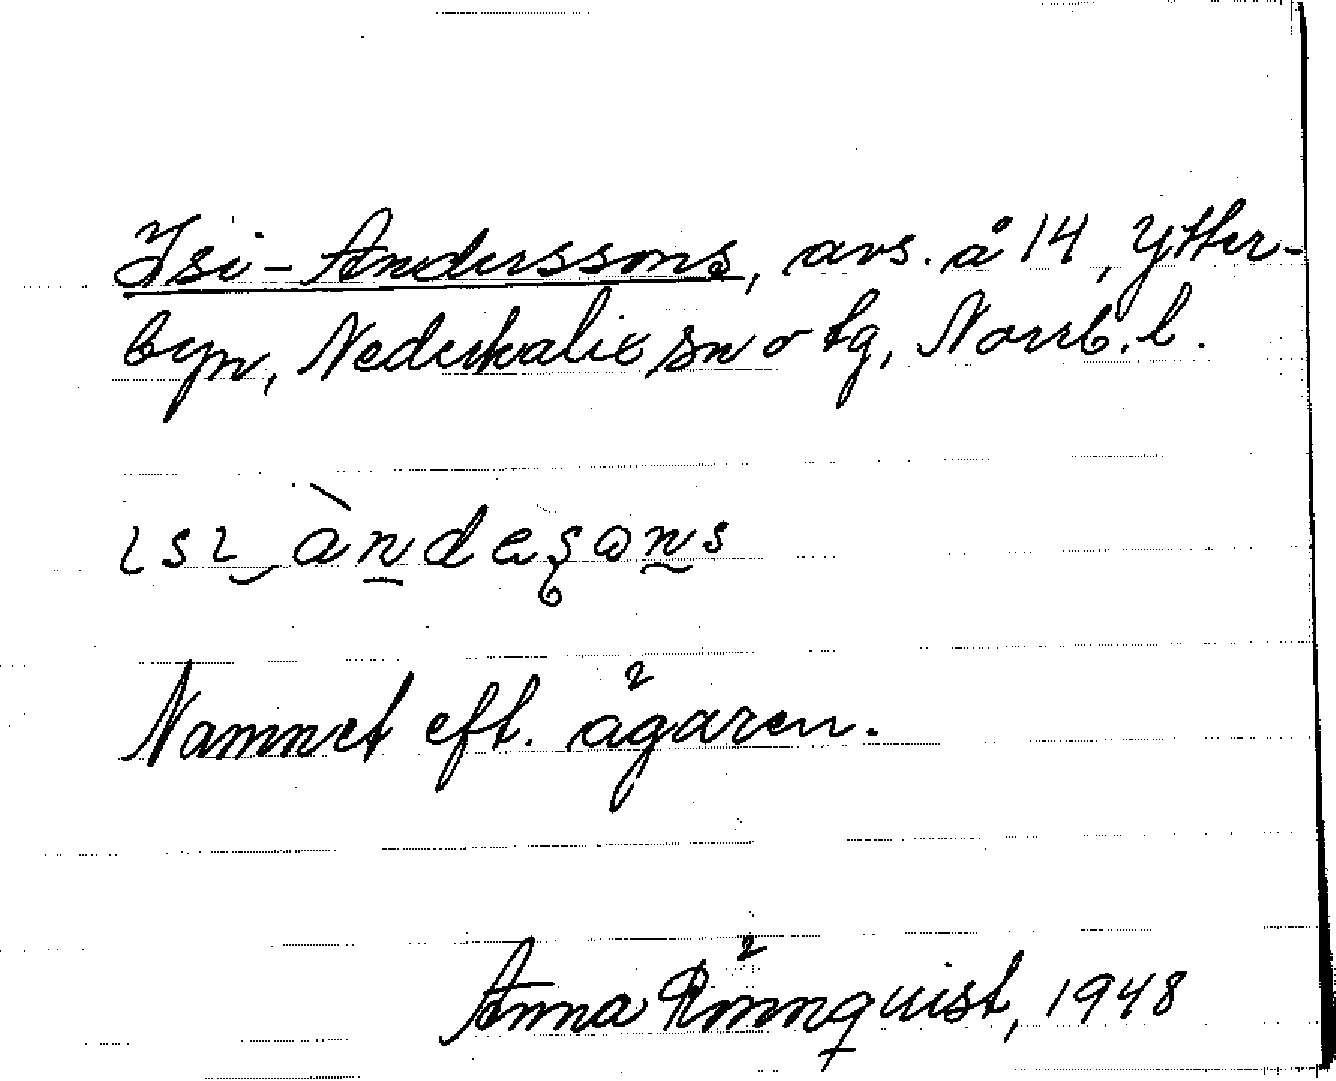 Isi-Anderssons, avs. å 14, Ytter-
byn, Nederkalix sn o tg, Norrb. l.
ısı àndeʂons
Namnet eft. ägaren.
Anna Rönnquist, 1948